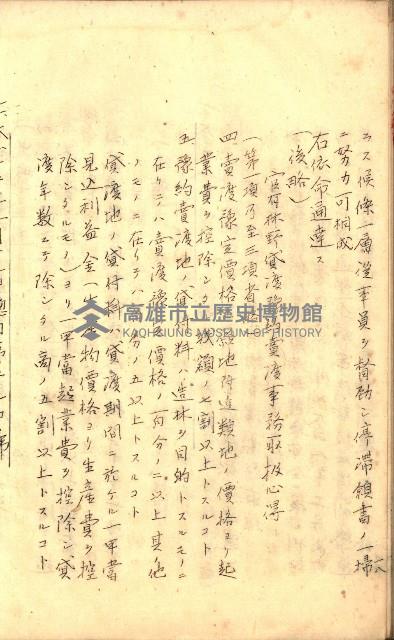 ラス候條一層從事員ヲ督勵シ停滯願書ノ一掃
ニ努力可相成
右依命通達ス
(後略)
官有林野貸渡豫約賣渡事務取扱心得
(第一項乃至三項省略)
四 賣渡豫定價格ハ 願地附近類地ノ價格ヨリ起
業費ヲ控除シタル殘額ノ七割以上トスルコト
五 豫約賣渡地ノ貸付料ハ造林ヲ目的トスルモノニ
在リテハ賣渡豫定價格ノ百分ノ二以上其他
ノモノニ在リテハ 分ノ五以上トスルコト
貸渡地ノ貸付料ハ貸渡期間ニ於ケル一甲當
見込利益金(生産物價格ヨリ生産費ヲ控
除シタルモノ)ヨリ一甲當起業費ヲ控除シ貸
渡年數ニテ除シタル商ノ五割以上トスルコト
高雄市立歷史博物館
KAOHSIUNG MUSEUM OF HISTORY